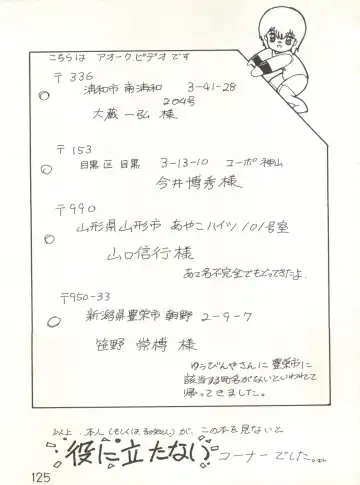 こちらは アオーク.ビデオ です
〒336
浦和市 南浦和 3-41-28
204号
大蔵一弘 様
〒153
目黒区 目黒 3-13-10 コーポ神山
今井博秀様
〒990
山形県山形市 あやこハイツ101号室
山口信行様
あて名不完全でもどってきたよ.
〒950-33
新潟県豊栄市 朝野 2-9-7
笹野 崇樽 様
ゆうびんやさんに豊栄市に
該当する町名がないといわれて
帰ってきました。
以上.本人(もしくはその知人)が、この本を見ないと
役に立たない コーナーでした。
125